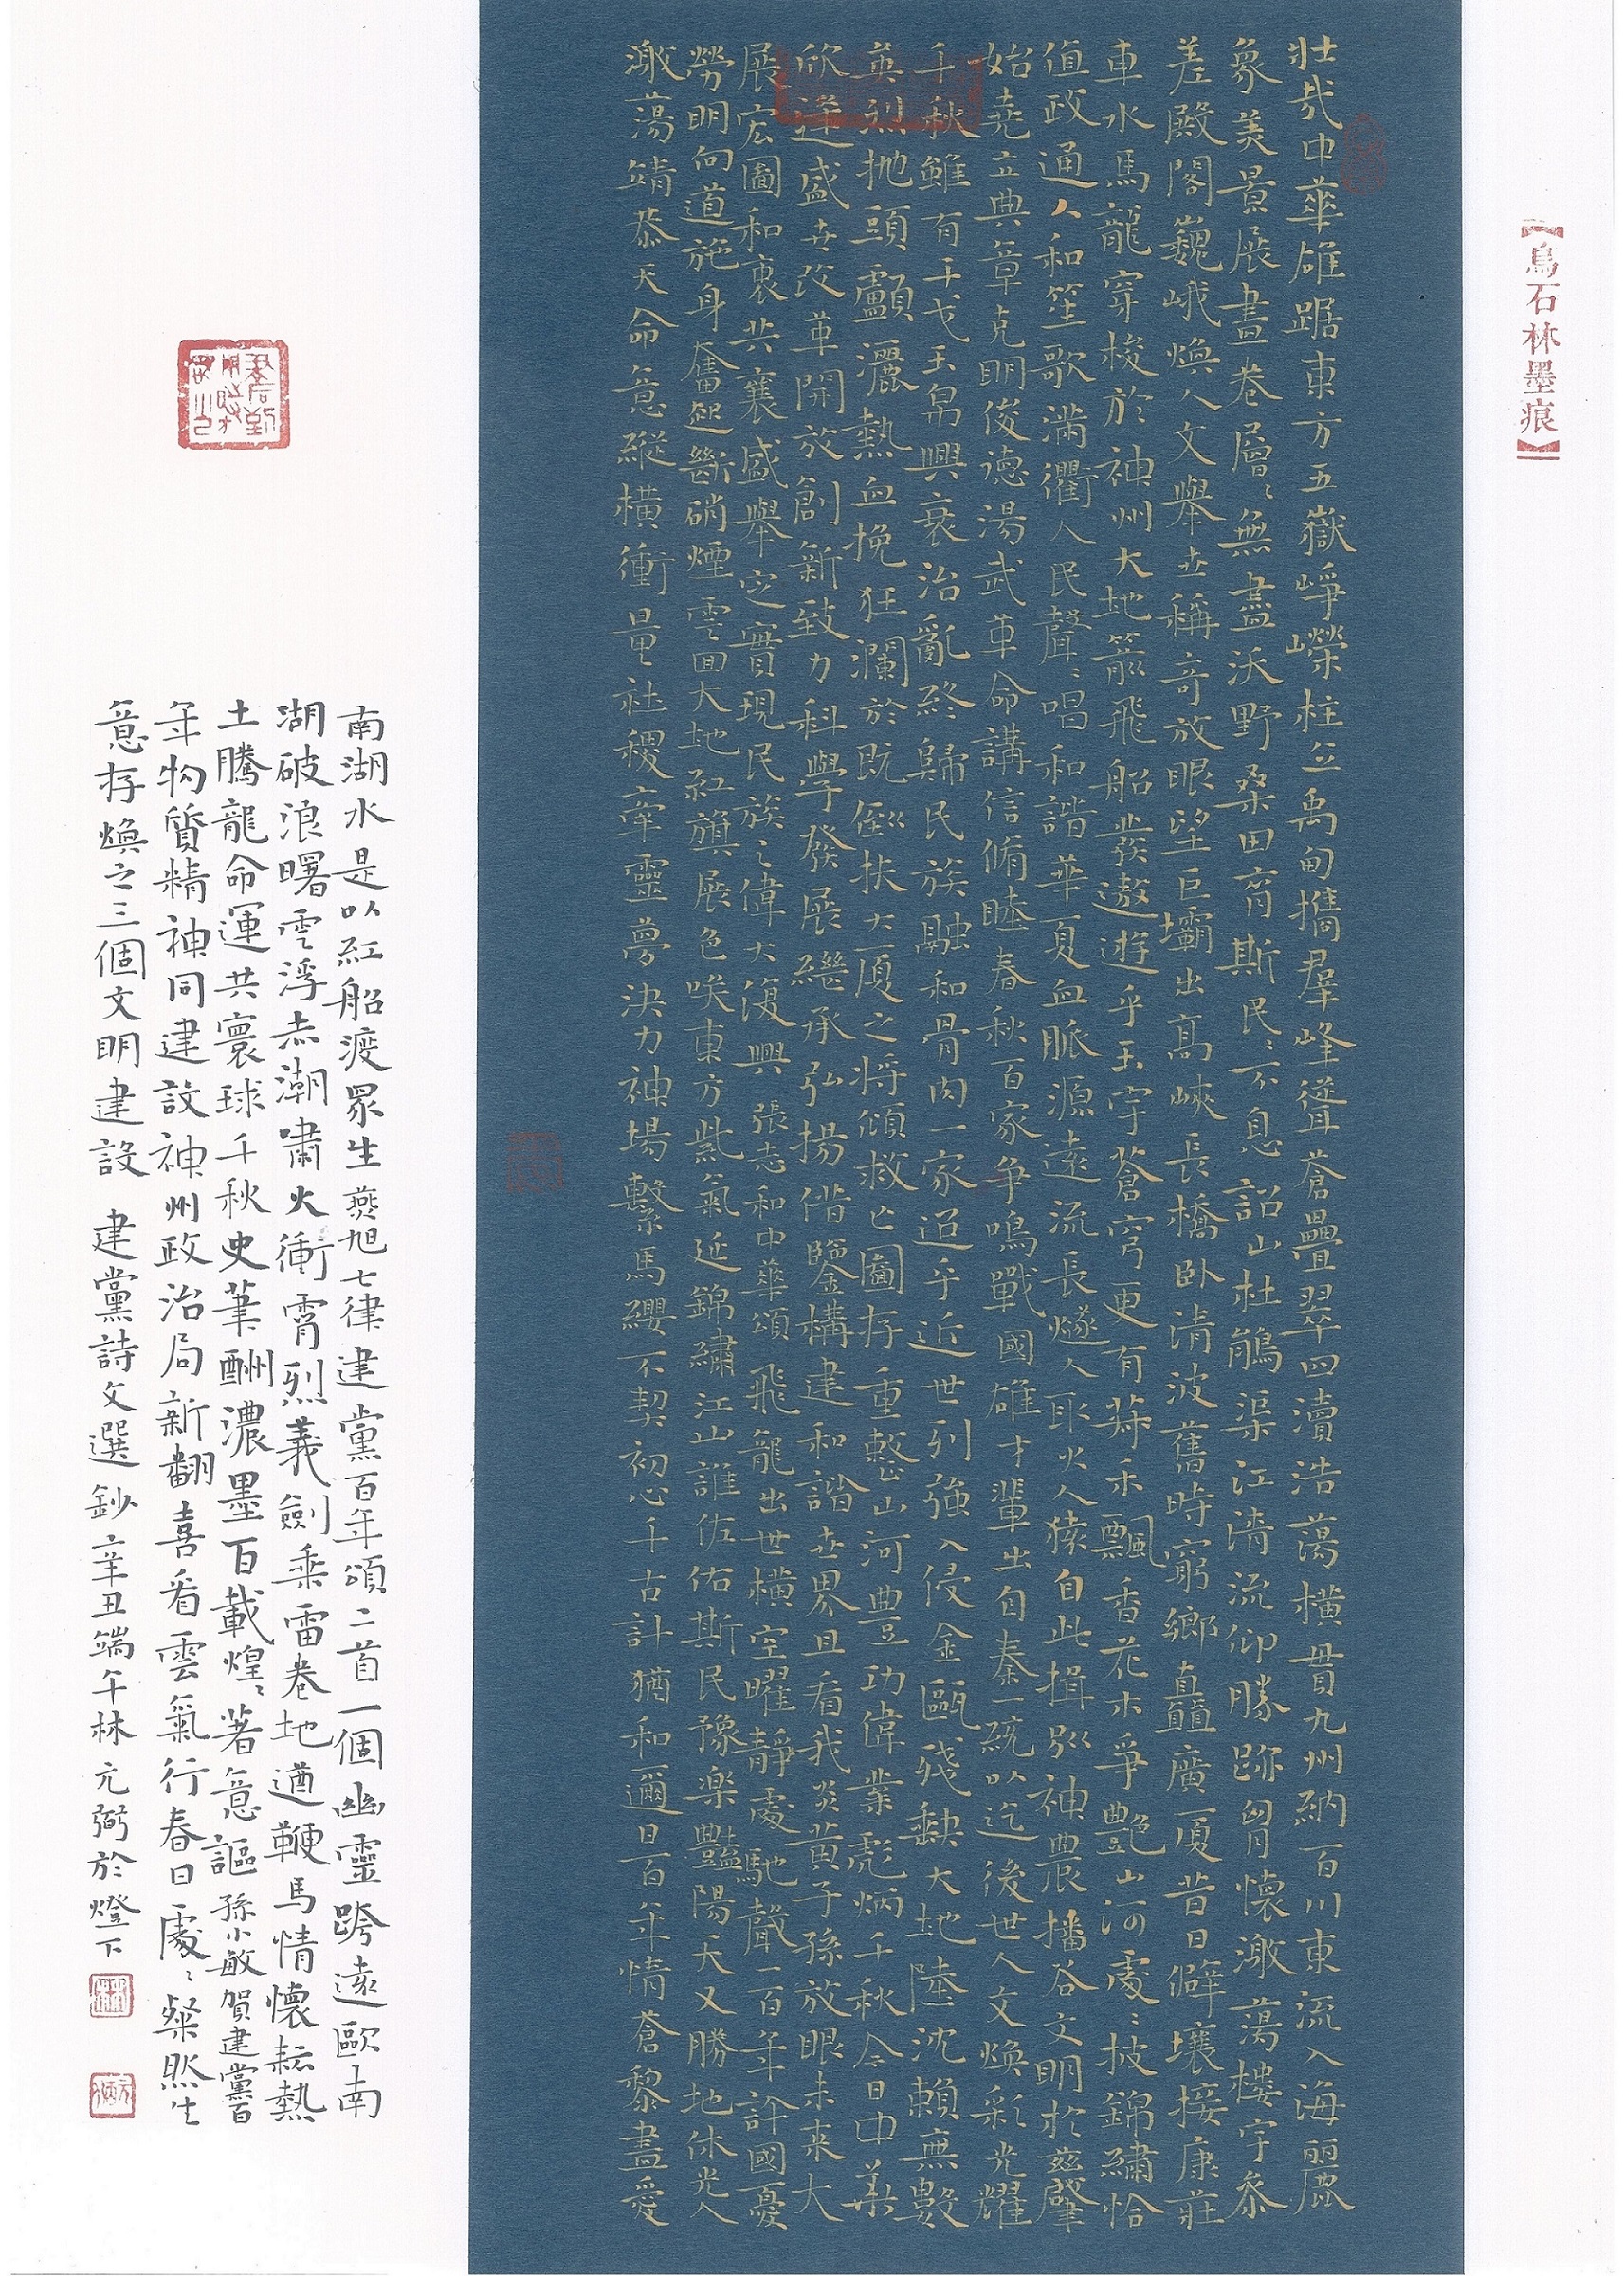 【烏石林墨痕】
壯哉中華雄踞東方五嶽崢嶸柱立禹甸攜羣峰聳蒼疊翠四瀆浩蕩橫貫九州納百川東流入海麗
象美景展畫卷層〻無盡沃野桑田育斯民〻不息詔山杜鵑渠江清流仰勝跡胸懷激蕩樓宇參
差殿閣巍峨煥人文舉世稱奇放眼望巨壩出高峽長橋卧清波舊時窮鄉矗廣厦昔日僻壤接康莊
車水馬龍穿梭於神州大地箭飛船發遨遊乎玉宇蒼穹更有蕣禾飄香花木爭艷山河處〻披錦繡恰
值政通人和笙歌滿衢人民聲〻唱和諧華夏血脈源遠流長燧人取火人猿自此揖別神農播谷文明於茲肇
始堯立典章克明俊德湯武革命講信脩睦春秋百家爭鳴戰國雄才輩出自秦一統以迄後世人文煥彩光耀
千秋雖有干戈玉帛興衰治亂終歸民族融和骨肉一家迢乎近世列強入侵金甌殘缺大地陸沈賴無數
英烈抛頭顱灑熱血挽狂瀾於既倒扶大厦之將傾救亡圖存重整山河豊功偉業彪炳千秋今日中華
欣逢盛世改革開放創新致力科學發展繼承弘揚借鑒構建和諧世界且看我炎黃子孫放眼未来大
展宏圖和衷共襄盛舉定實現民族之偉大復興 張志和中華頌 飛龍出世橫空曜靜處馳聲一百年許國憂
勞明向道施身奮起斷硝煙雲回大地紅旗展色映東方紫氣延錦繡江山誰佐佑斯民豫樂豔陽天又勝地休光人
激蕩靖恭天命意縱橫衝量社稷牽靈夢決力神場繫馬纓不契初心千古計猶和邇旦百年情蒼黎盡愛
南湖水是以紅船渡眾生 燕旭七律建黨百年頌二首 一個幽靈跨遠歐南
湖破浪曙雲浮赤潮嘯火衝霄烈義劍乘雷卷地遒鞭馬情懷耘熱
土騰龍命運共寰球千秋史筆酬濃墨百載煌〻著意謳 孫小敏賀建黨百
年 物質精神同建設神州政治局新翻喜看雲氣行春日處〻粲然生
意存 煥之三個文明建設 建黨詩文選鈔 辛丑端午林元弼於燈下